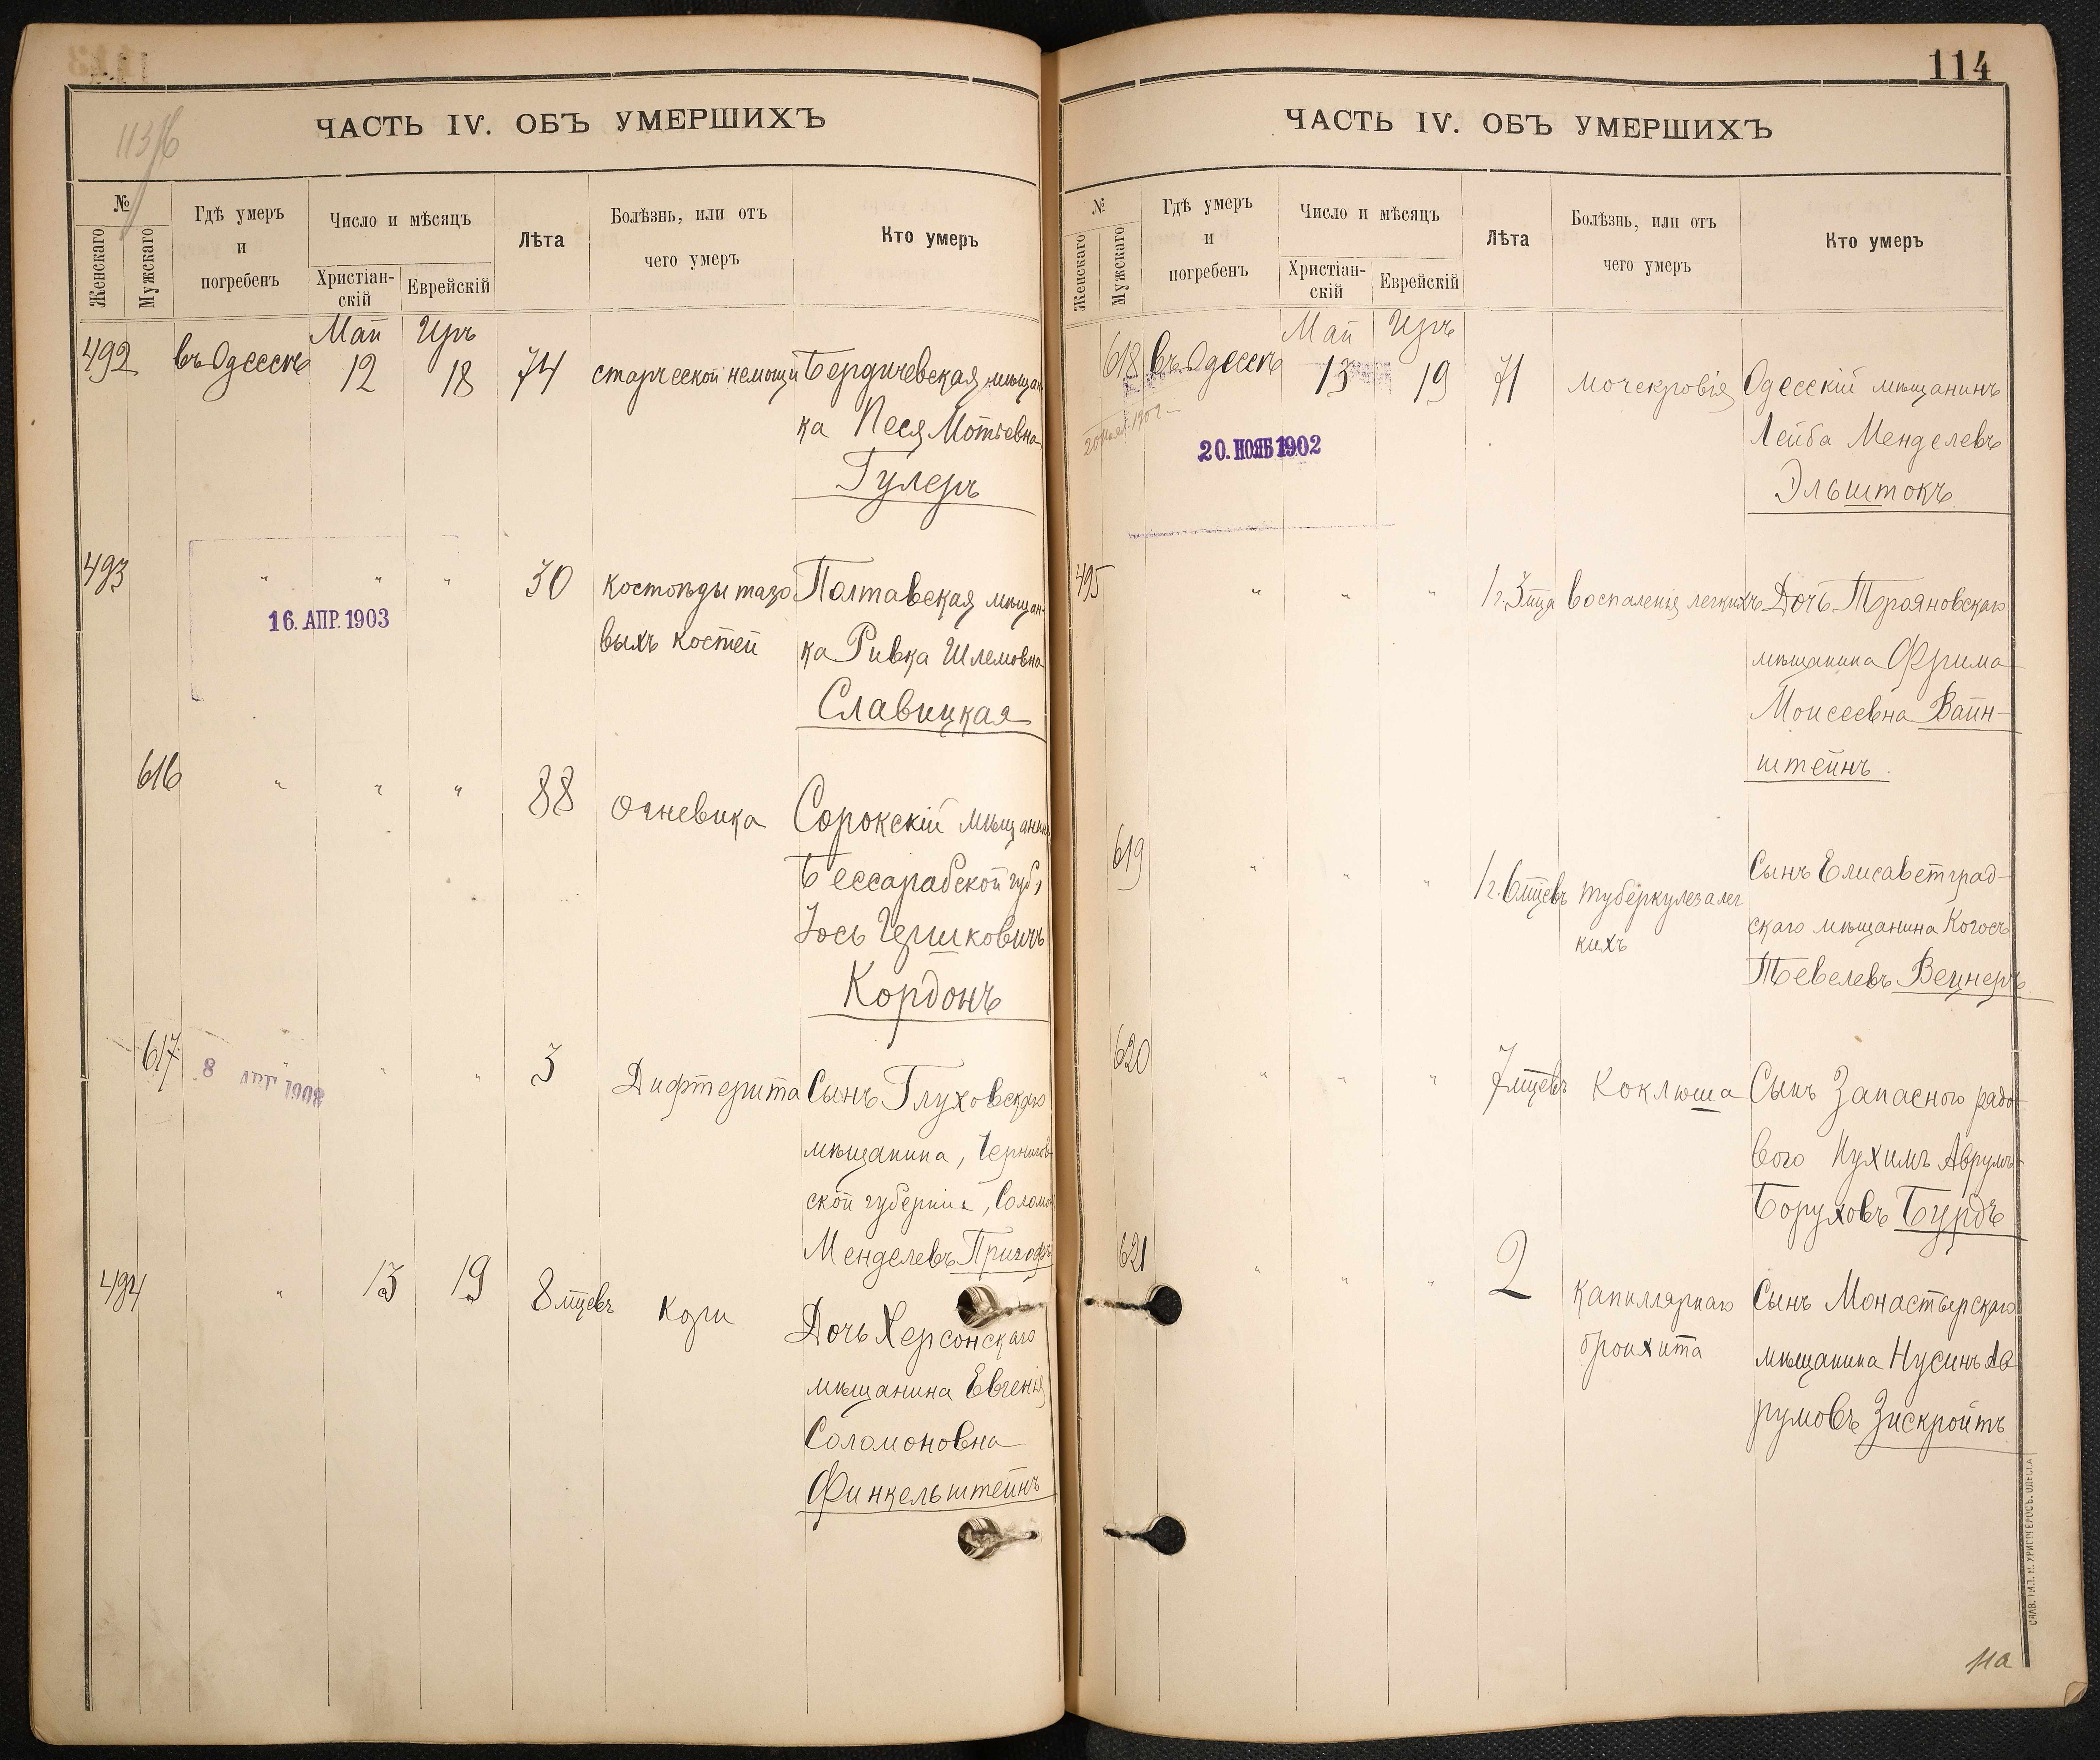 113/6
ЧАСТЬ IV. ОБЪ УМЕРШИХЪ
№
Женскаго
Мужскаго
Гдѣ умеръ
и
погребенъ
Число и мѣсяцъ
Христіан-
скій
Еврейскій
Лѣта
Болѣзнь, или отъ
чего умеръ
Кто умеръ
Май Иръ
492 въ Одессѣ 12 18 74 старческой немощи Бердичевская мѣщан-
ка Песя Мотьевна
Гулеръ
493 " " " 30 костоѣды тазо Полтавская мѣщан-
выхъ костей ка Ривка Шлемовна
16. АПР. 1903
Славицкая
616 " " " 88 огневика Сорокскій мѣщанинъ
Бессарабской губ,
Іось Гершковичъ
Кордонъ
617 " " " 3 Дифтерита Сынъ Глуховскаго
8 АВГ 1908
мѣщанина, Чернигов-
ской губерніи, Соломон
Менделевъ
494 " 13 19 8 мцевъ Кори
Дочь Херсонскаго
мѣщанина Евгенія
Соломоновна
Финкельштейнъ
114
ЧАСТЬ IV. ОБЪ УМЕРШИХЪ
№
Женскаго
Мужскаго
Гдѣ умеръ
и
погребенъ
Число и мѣсяцъ
Христіан-
скій
Еврейскій
Лѣта
Болѣзнь, или отъ
чего умеръ
Кто умеръ
Май Иръ
618 въ Одессѣ 13 19 71 мочекровія Одесскій мѣщанинъ
Лейба Менделевъ
20. НОЯБ 1902
Эльштокъ
495 " " " 1 г. 3 мца воспаленія легкихъ Дочь Трояновскаго
мѣщанина Фрима
Моисеевна Вайн-
штейнъ
619 " " " 1 г. 6 мцевъ туберкулеза лег Сынъ Елисаветград-
кихъ скаго мѣщанина Когосъ
Тевелевъ Вецнеръ
620 " " " 7 мцевъ Коклюша Сынъ Запаснаго рядо
вого Нухимъ Аврумъ
Боруховъ Бурдъ
621 " " " 2 Капиллярнаго Сынъ Монастырскаго
бронхита мѣщанина Нусинъ Ав
румовъ Зискройтъ
СЛАВ. ТИП. Н. ХРИСОГЕЛОСЪ. ОДЕССА